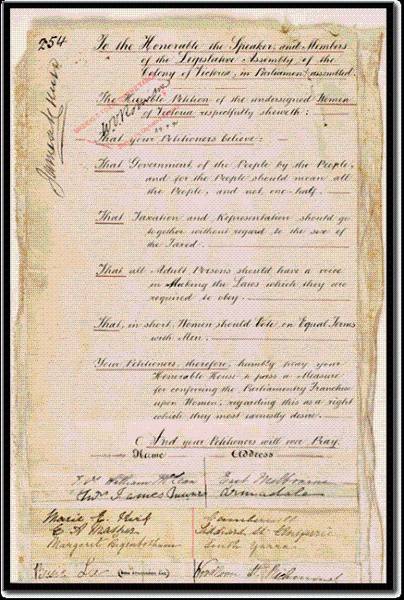 254
To the Honorable the Speaker, and Members
of the Legislative Assembly of the
Colony of Victoria, in Parliament assembled.
The Humble Petition of the undersigned Women
of Victoria respectfully sheweth:
That your Petitioners believe:
That Government of the People by the People,
and for the People should mean all
the People, and not one-half.
That Taxation and Representation should go
together without regard to the sex of
the Taxed.
That all Adult Persons should have a voice
in Making the Laws which they are
required to obey.
That, in short, Women should Vote on Equal Terms
with Men.
Your Petitioners, therefore, humbly pray your
Honorable House to pass a Measure
for conferring the Parliamentary Franchise
upon Women, regarding this as a right
which they most earnestly desire.
And your Petitioners will ever Pray.
Name Address
William McLean East Melbourne
James Munro Armadale
Marie E. Kirk Camberwell
E A Mather
Margaret Higinbotham South Yarra
Lee Richmond